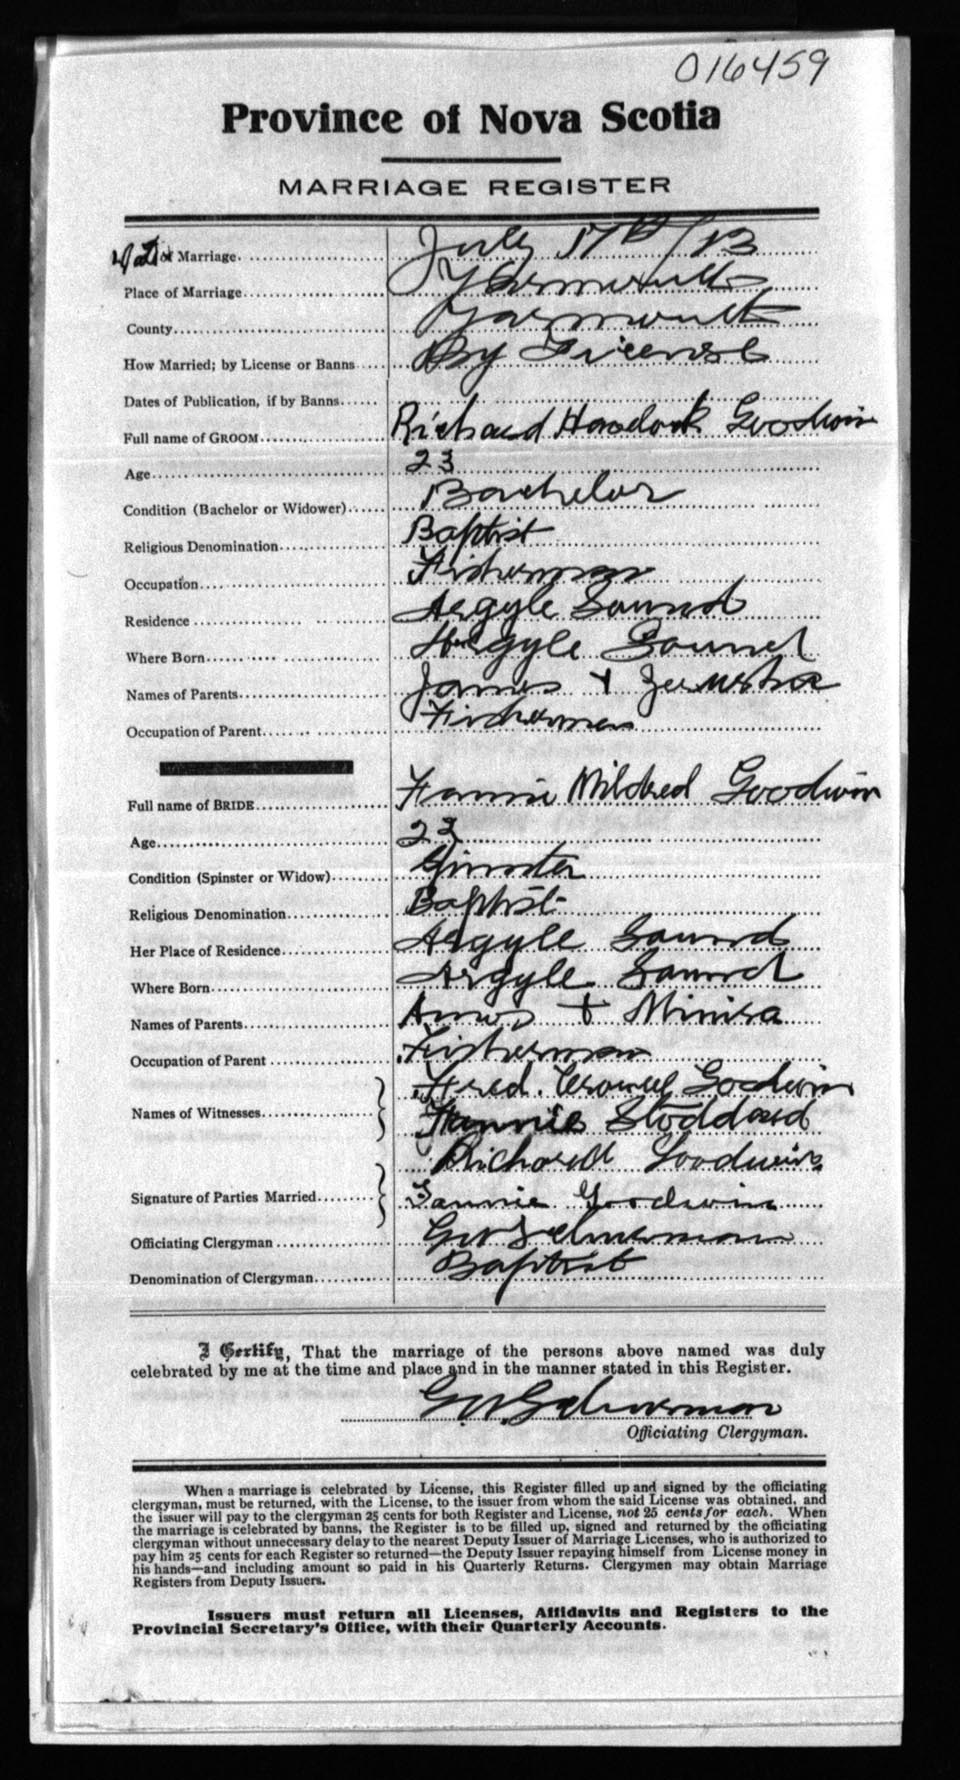 016459
Province of Nova Scotia
MARRIAGE REGISTER
Date of Marriage July 17th/13
Place of Marriage Yarmouth
County Yarmouth
How Married; by License or Banns By License
Dates of Publication, if by Banns
Full name of GROOM Richard Goodwin
Age 23
Condition (Bachelor or Widower) Bachelor
Religious Denomination Baptist
Occupation Fisherman
Residence Argyle Sound
Where Born Argyle Sound
Names of Parents James +
Occupation of Parent Fisherman
Full name of BRIDE Fannie Mildred Goodwin
Age 23
Condition (Spinster or Widow) Spinster
Religious Denomination Baptist
Her Place of Residence Argyle Sound
Where Born Argyle Sound
Names of Parents Amos +
Occupation of Parent Fisherman
Fred. Crowell Goodwin
Names of Witnesses Fannie Stoddard
Richard Goodwin
Signature of Parties Married Fannie Goodwin
Officiating Clergyman
Denomination of Clergyman Baptist
I Certify, That the marriage of the persons above named was duly
celebrated by me at the time and place and in the manner stated in this Register.
Officiating Clergyman.
When a marriage is celebrated by License, this Register filled up and signed by the officiating
clergyman, must be returned, with the License, to the issuer from whom the said License was obtained, and
the issuer will pay to the clergyman 25 cents for both Register and License, not 25 cents for each. When
the marriage is celebrated by banns, the Register is to be filled up, signed and returned by the officiating
clergyman without unnecessary delay to the nearest Deputy Issuer of Marriage Licenses, who is authorized to
pay him 25 cents for each Register so returned—the Deputy Issuer repaying himself from License money in
his hands—and including amount so paid in his Quarterly Returns. Clergymen may obtain Marriage
Registers from Deputy Issuers.
Issuers must return all Licenses, Affidavits and Registers to the
Provincial Secretary's Office, with their Quarterly Accounts.